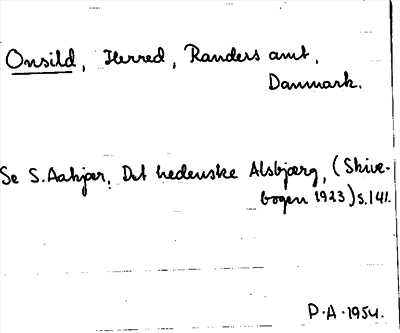 Onsild, Herred, Randers amt,
Danmark.
Se S. Aakjær, Det hedenske Alsbjærg, (Skive-
bogen 1923) s. 141.
P.A. 1954.